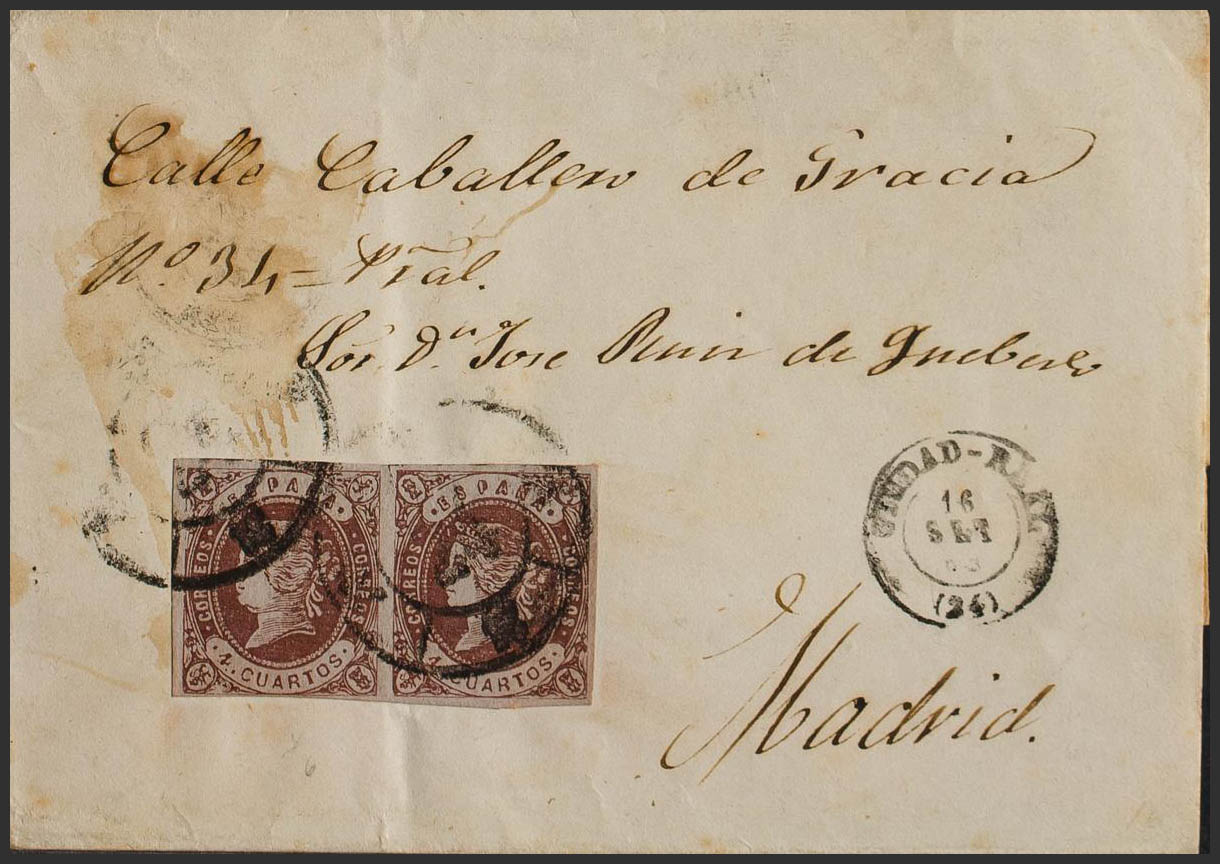 Calle Caballero de Gracia
Nº 34 = Pral.
Sor. Dn Jose Ruiz de
CIUDAD-REAL
16
SET
63
(24)
ESPAÑA
CORREOS
CORREOS
4. CUARTOS.
ESPAÑA
CORREOS
CORREOS
4. CUARTOS.
Madrid.